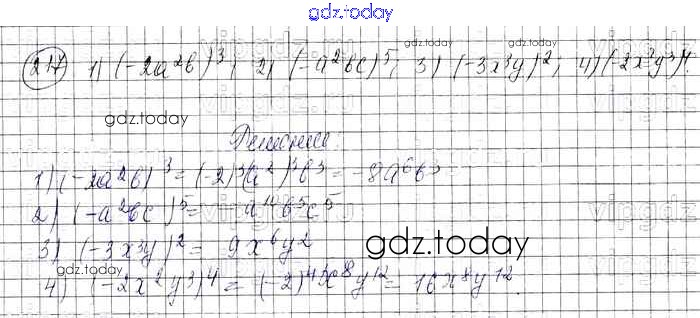 gdz.today
217 1) (-2a²b)³; 2) (-a²bc)⁵; 3) (-3x³y)²; 4) (-2x²y³)⁴.
gdz.today
gdz.today
Решение:
1) (-2a²b)³ = (-2)³(a²)³b³ = -8a⁶b³
2) (-a²bc)⁵ = -a¹⁰b⁵c⁵
3) (-3x³y)² = 9x⁶y²
gdz.today
gdz.today
4) (-2x²y³)⁴ = (-2)⁴x⁸y¹² = 16x⁸y¹².